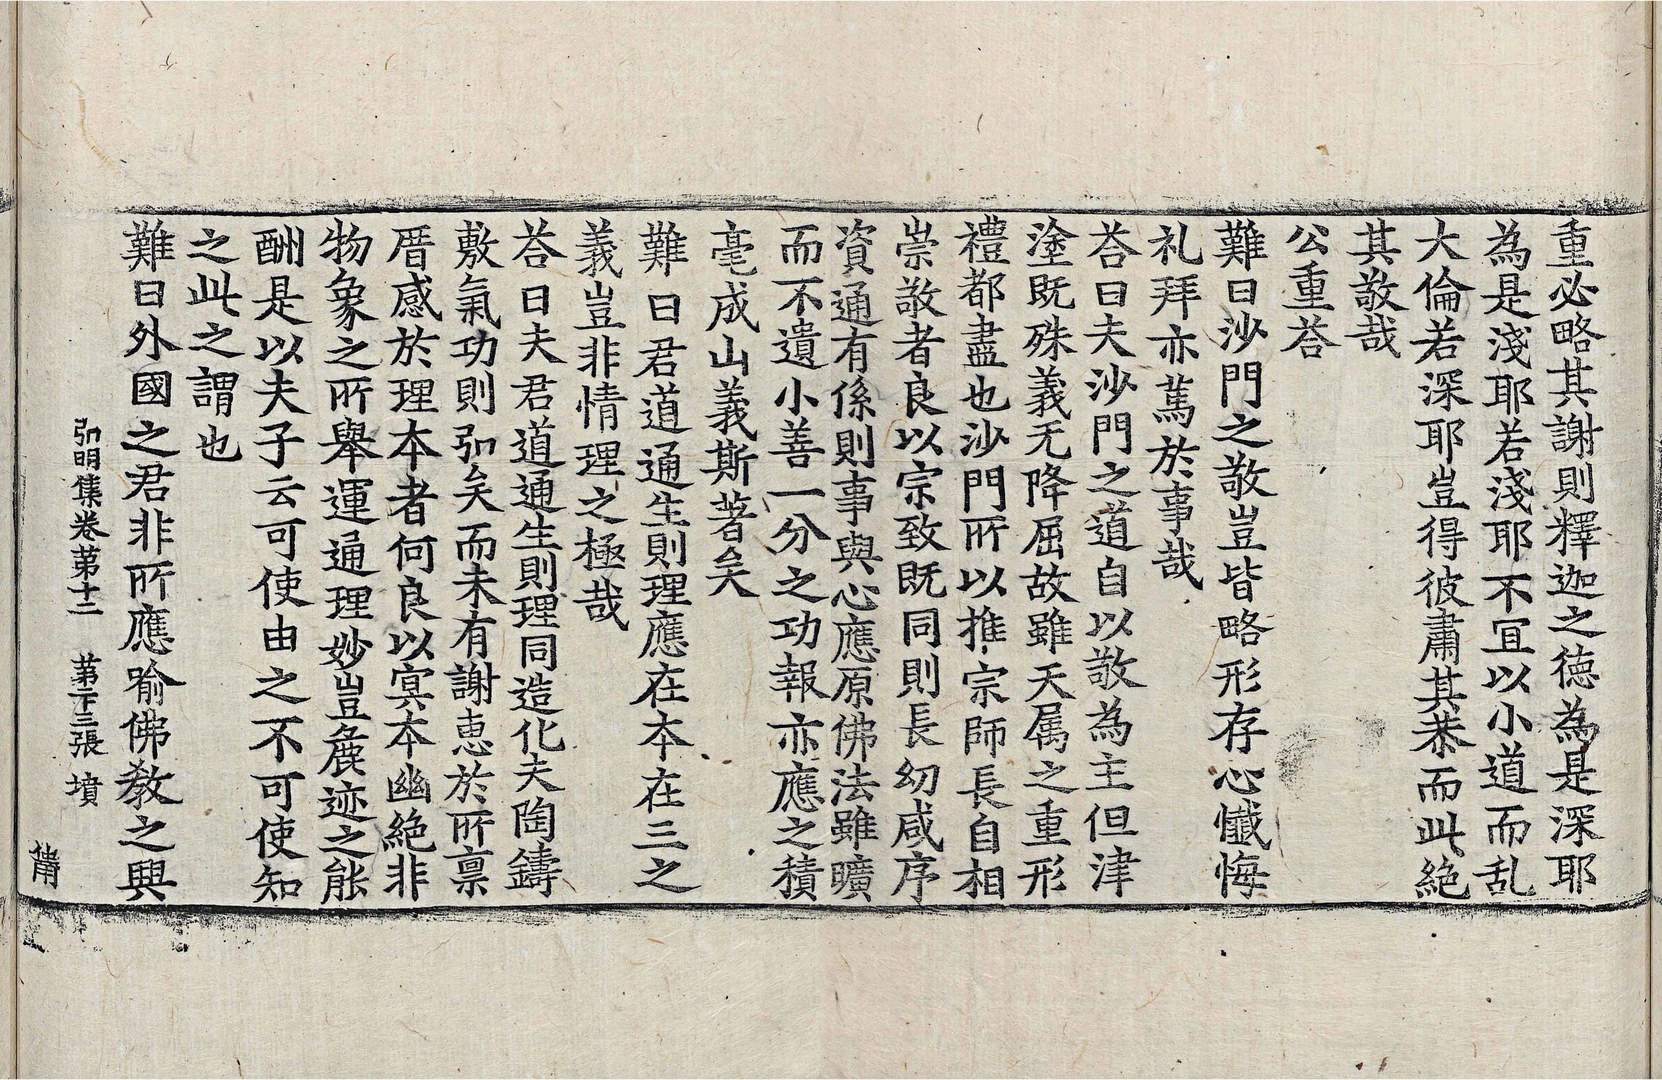 重必略其謝則釋迦之徳為是深耶
為是淺耶若淺耶不冝以小道而乱
大倫若深耶豈得彼肅其恭而此絶
其敬哉
公重荅
難曰沙門之敬豈皆略形存心懺悔
礼拜亦萬於事哉
荅曰夫沙門之道自以敬為主但津
塗既殊義无降屈故雖天属之重形
禮都盡也沙門所以推宗師長自相
崇敬者良以宗致既同則長㓜咸序
資通有係則事與心應原佛法雖曠
而不遺小善一分之功報亦應之積
毫成山義斯著矣
難曰君道通生則理應在本在三之
義豈非情理之極哉
荅曰夫君道通生則理同造化夫陶鑄
敷氣功則弘矣而未有謝惠於所禀
厝感於理本者何良以冥本幽絶非
物象之所舉運通理妙豈麁迹之能
酬是以夫子云可使由之不可使知
之此之謂也
難曰外國之君非所應喻佛教之興
弘明集卷第十二 第二十三張 墳